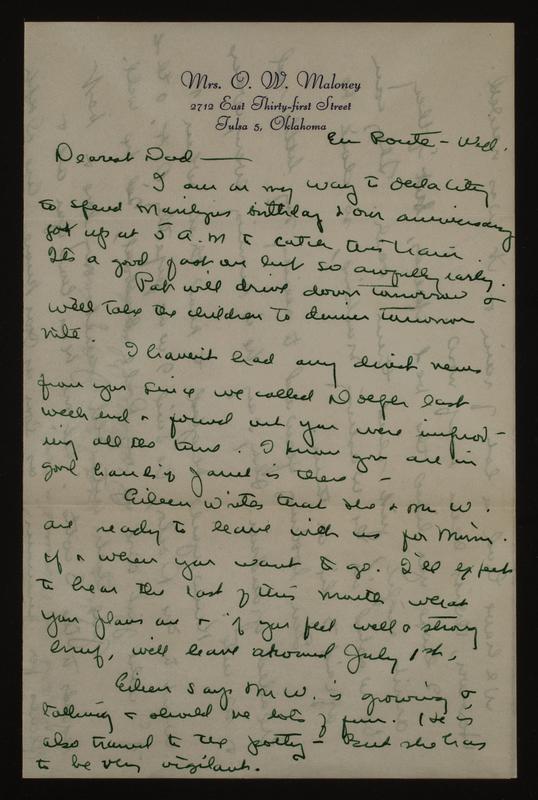 Mrs. O. W. Maloney
2712 East Thirty-first Street
Tulsa 5, Oklahoma
En Route - Wed.
Dearest Dad —
I am on my way to Okla City
to spend Marilyns birthday & our anniversary
got up at 5 A.M to catch this train.
Its a good fast one but so awfully early.
Pat will drive down tomorrow &
we'll take the children to dinner tomorrow
nite.
I haven't had any direct news
from you since we called Doefer last
week end & found out you were improv-
ing all the time. I know you are in
good hands if Janet is there —
Eileen writes that she & Mr W.
are ready to leave with us for Minn.
if & when you want to go. I'll expect
to hear the last of this month what
your plans are & if you feel well & strong
enuf, we'll leave around July 1st.
Eileen says Mr W. is growing &
talking & should be lots of fun. He is
also trained to the potty - But she has
to be very vigilant.